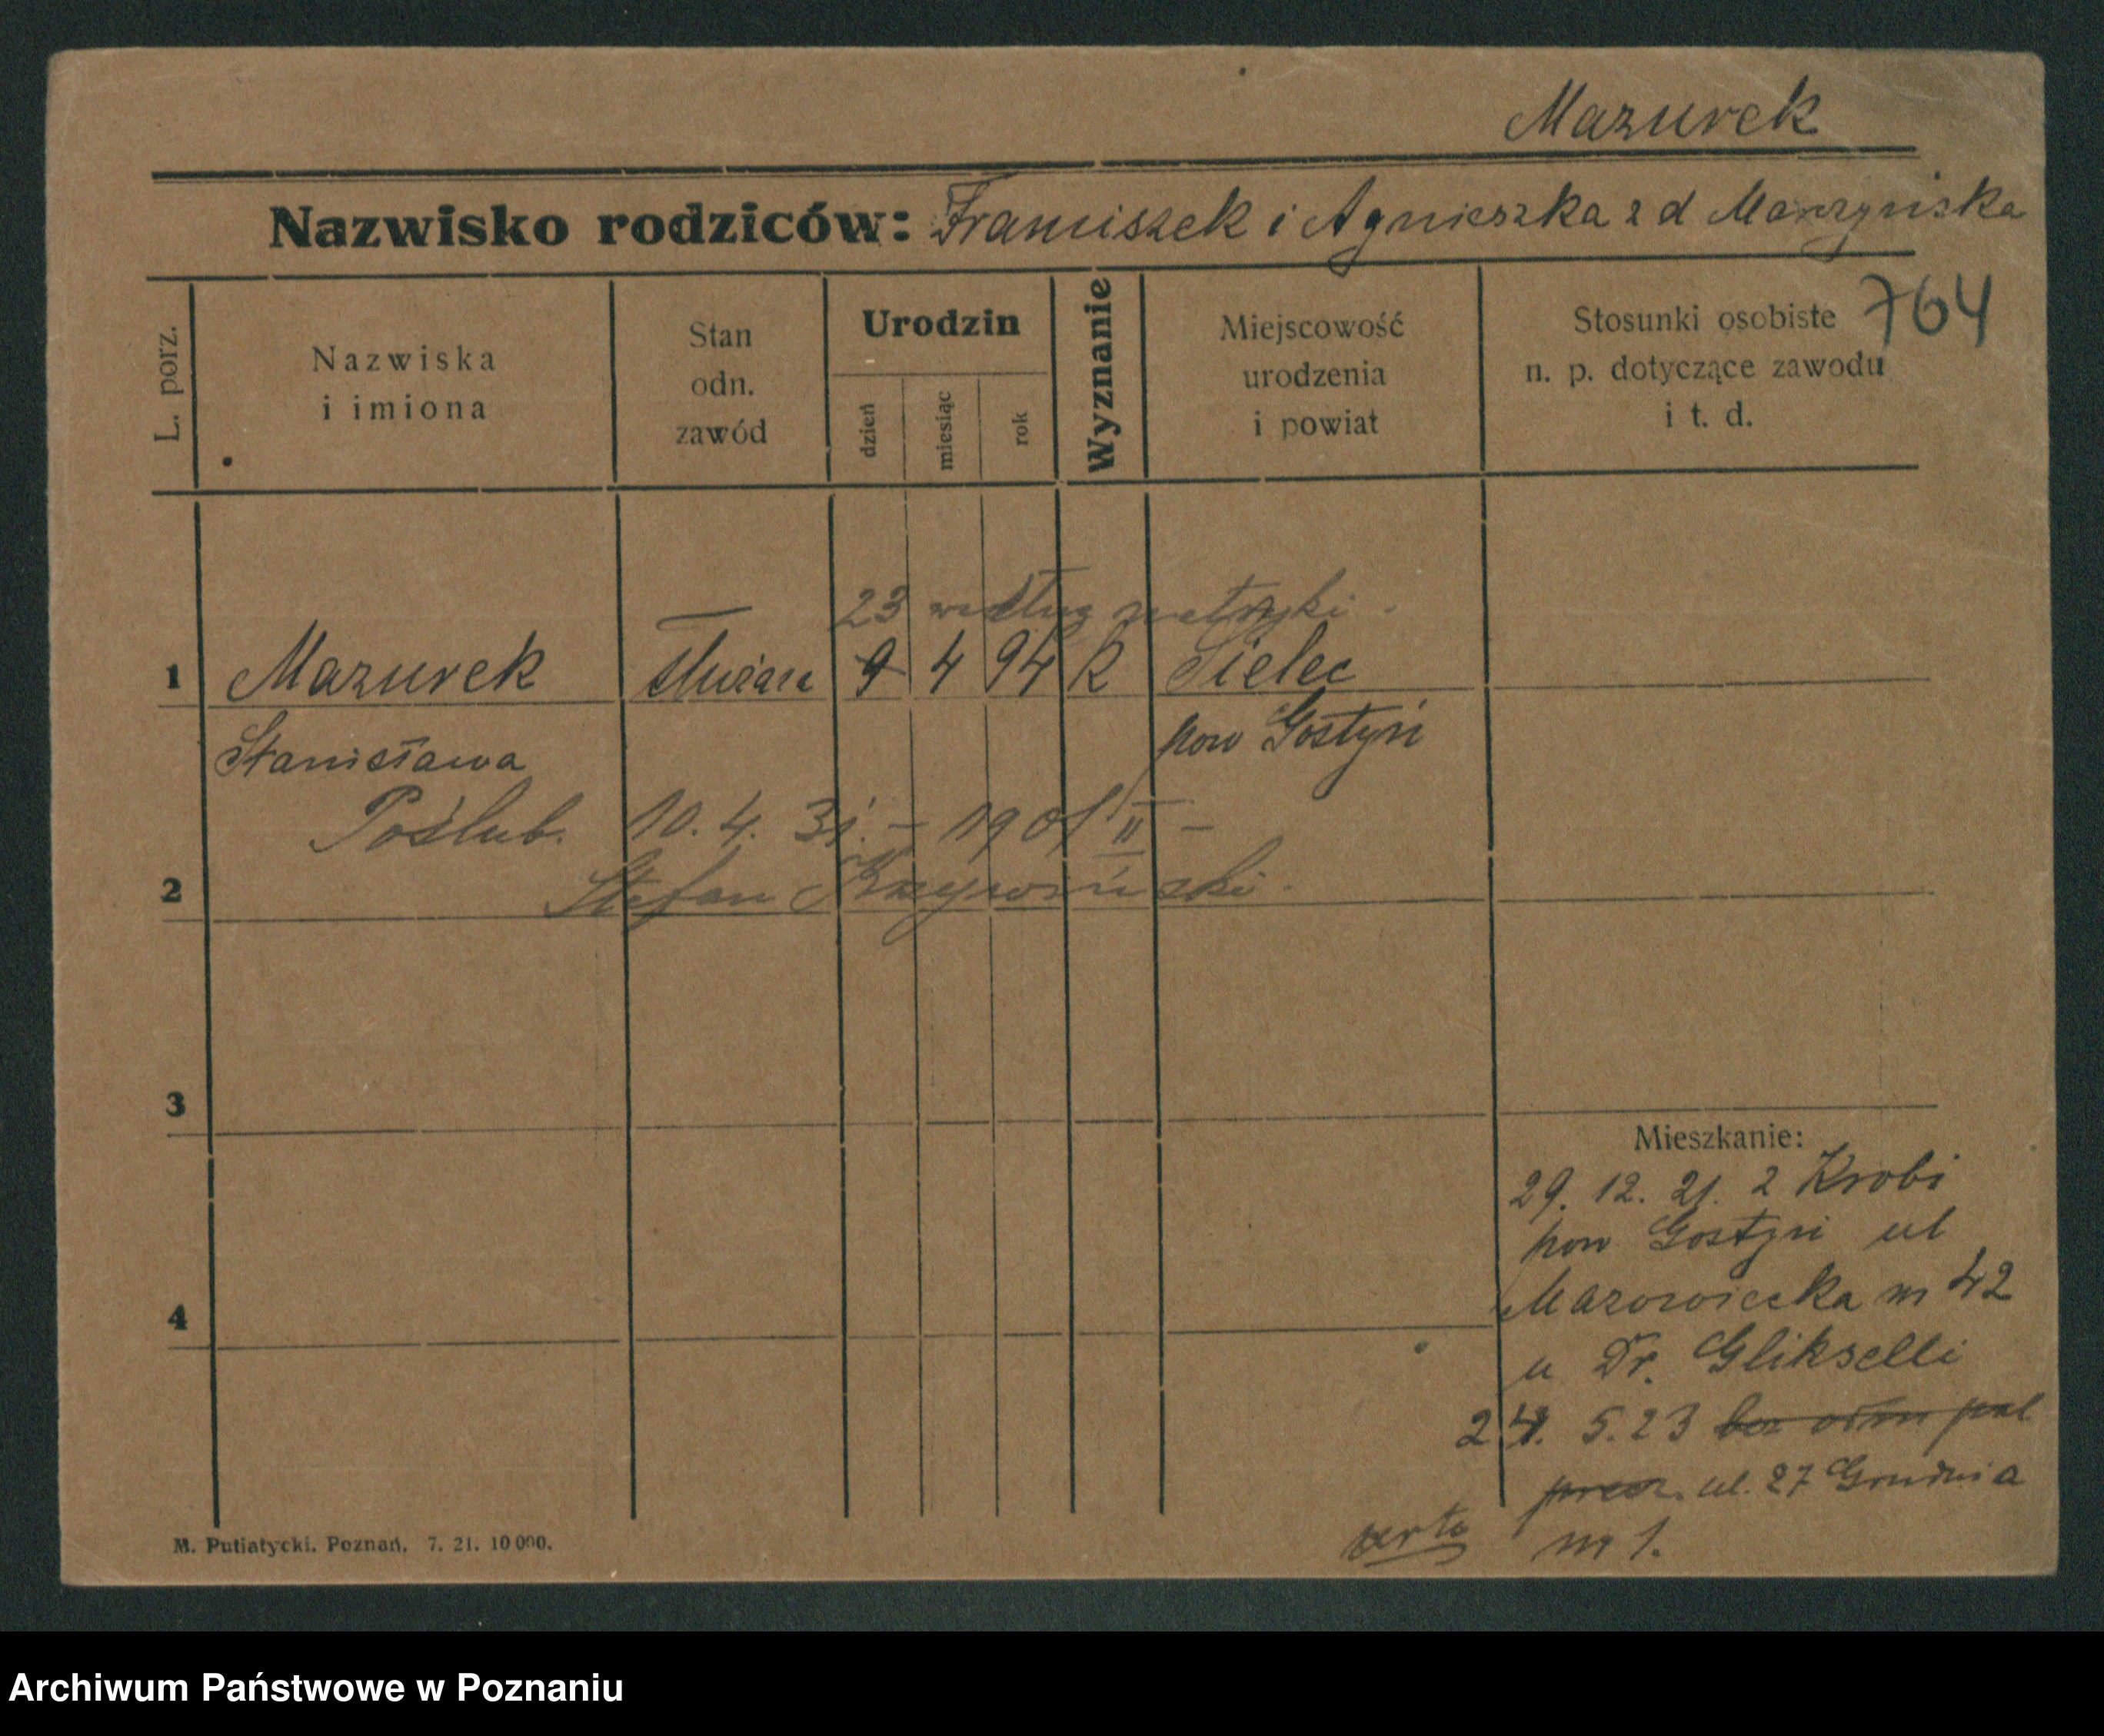 Mazurek
Nazwisko rodziców: Franciszek i Agnieszka z d
764
L. porz.
Nazwiska
i imiona
Stan
odn.
zawód
Urodzin
dzień
miesiąc
rok
Wyznanie
Miejscowość
urodzenia
i powiat
Stosunki osobiste
n. p. dotyczące zawodu
i t. d.
23 według metryki.
1 Mazurek służąca 9 4 94 R Sielec
Stanisława pow Gostyń
Poślub. 10. 4. 31. – 1901 II –
2 Stefan Krzywiński.
3
4
Mieszkanie:
29. 12. 21. z Krobi
pow Gostyń ul
Mazowiecka m 42
u Dr. Glikselli
24. 5. 23
ul. 27 Grudnia
m 1.
M. Putiatycki. Poznań. 7. 21. 10 000.
Archiwum Państwowe w Poznaniu